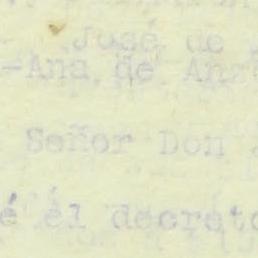 José de
-Ana de Anz
Señor Don
é el decreto